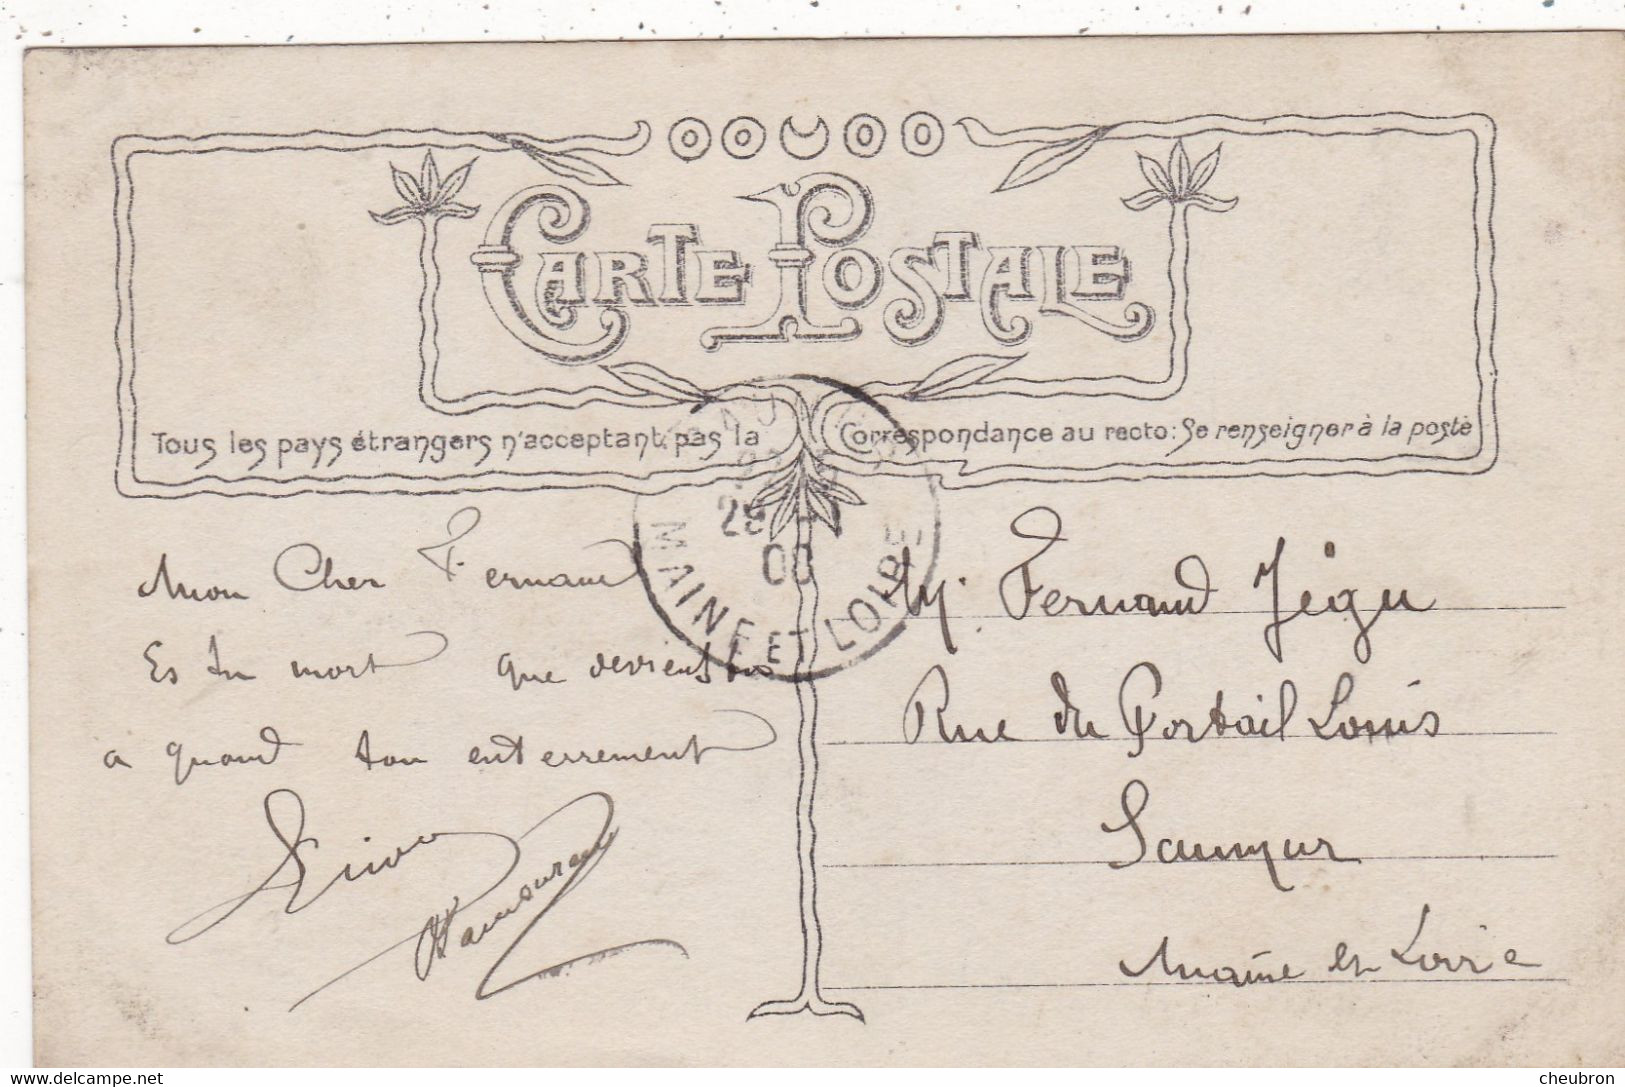 CARTE POSTALE
Tous les pays étrangers n'acceptant pas la Correspondance au recto: Se renseigner à la poste
28
00
MAINE ET LOIRE
Mon Cher Fernand
Es tu mort que deviens tu
a quand ton enterrement
M. Fernand Jégu
Rue du Portail Louis
Saumur
Maine et Loire
delcampe.net
cheubron